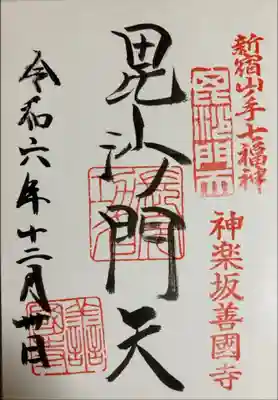 新宿山ノ手七福神
毘沙門天
神楽坂善國寺
毘沙門天
令和六年十二月卅日